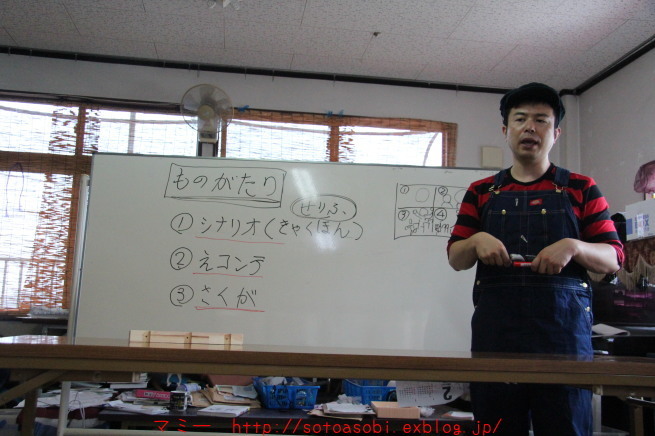 ものがたり
せりふ
① シナリオ(きゃくほん)
② えコンテ
③ さくが
① ②
③ ④
マミー http://sotoasobi.exblog.jp/